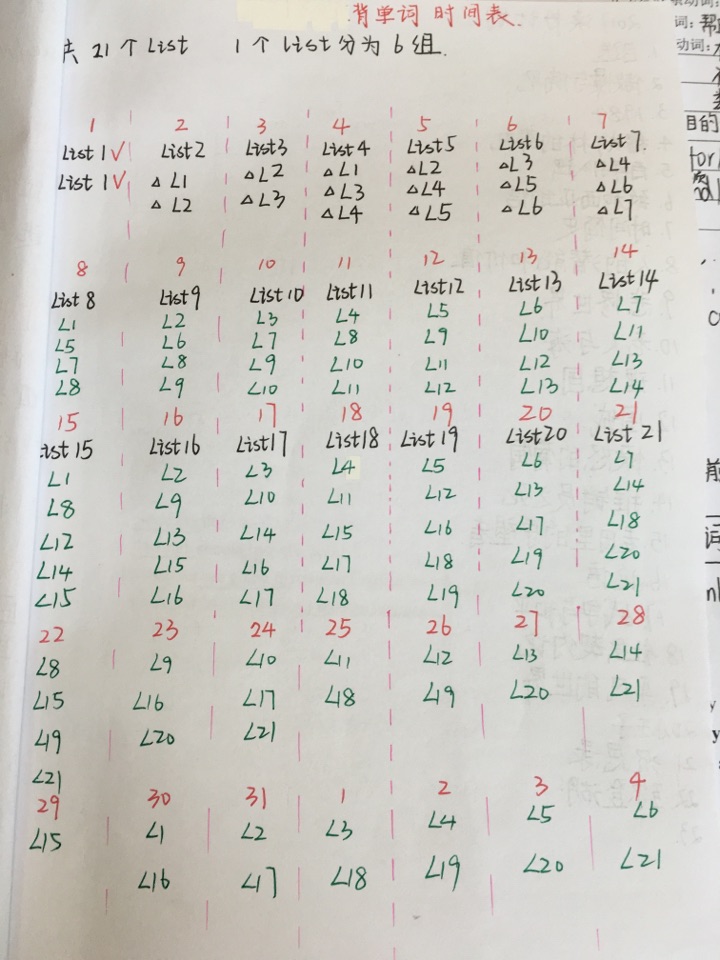 背单词 时间表.
共 21 个 List 1 个 list 分为 6 组.
1 2 3 4 5 6 7
List 1 √ List2 List3 List4 List5 List6 List7.
List 1 √ △ L1 △L2 △L1 △L2 △L3 △L4
△ L2 △L3 △L3 △L4 △L5 △L6
△L4 △L5 △L6 △L7
8 9 10 11 12 13 14
List 8 List9 List10 List11 List12 List13 List14
L1 L2 L3 L4 L5 L6 L7
L5 L6 L7 L8 L9 L10 L11
L7 L8 L9 L10 L11 L12 L13
L8 L9 L10 L11 L12 L13 L14
15 16 17 18 19 20 21
List 15 List16 List17 List18 List 19 List20 List 21
L1 L2 L3 L4 L5 L6 L7
L8 L9 L10 L11 L12 L13 L14
L12 L13 L14 L15 L16 L17 L18
L14 L15 L16 L17 L18 L19 L20
L15 L16 L17 L18 L19 L20 L21
22 23 24 25 26 27 28
L8 L9 L10 L11 L12 L13 L14
L15 L16 L17 L18 L19 L20 L21
L19 L20 L21
L21
29 30 31 1 2 3 4
L15 L1 L2 L3 L4 L5 L6
L16 L17 L18 L19 L20 L21
动词:
词:
动词:
目的
前
词